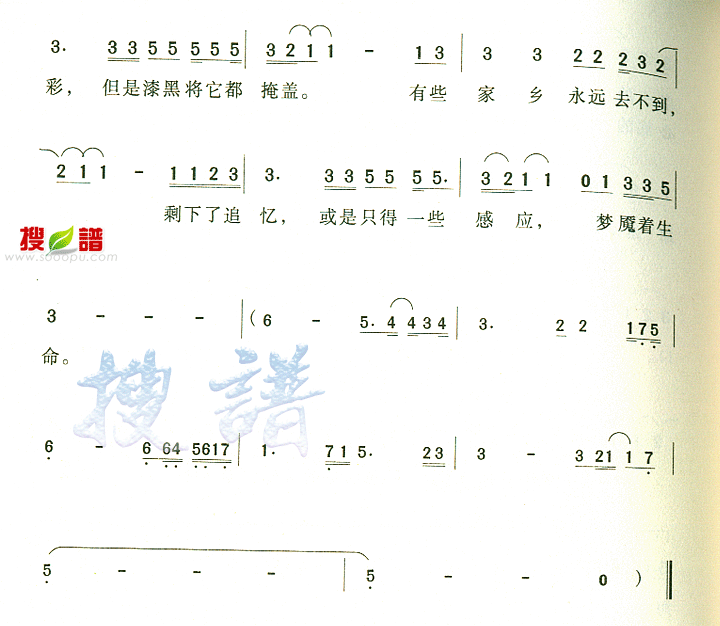 3· 3355 555 | 3211 - 13 | 3 3 22 232 |
彩，但是漆黑将它都 掩盖。 有些 家 乡 永远去不到，
211 - 1123 | 3· 3355 55· | 3211 01 335 |
剩下了追 忆， 或是只得一些 感 应， 梦魇着生
搜 谱
www.sooopu.com
3 - - - | (6 - 5·4 434 | 3· 2 2 175 |
命。
搜谱
6 - 6 64 5617 | 1· 71 5· 23 | 3 - 3 211 17 |
5 - - - | 5 - - 0 ) ‖